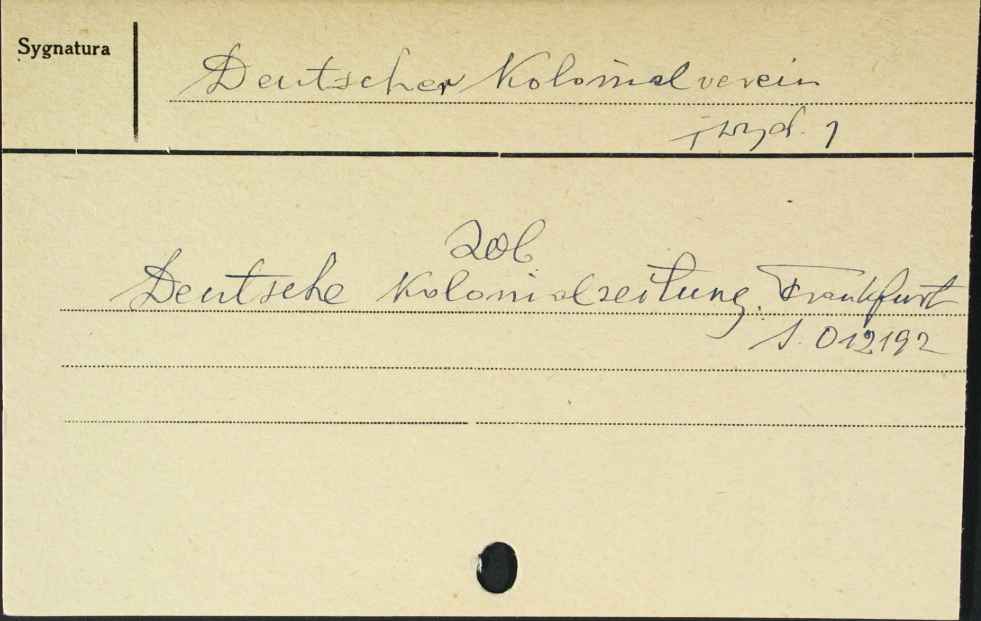 Sygnatura
Deutscher Kolonialverein
[wyd.]
zob
Deutsche Kolonialzeitung. Frankfurt
S. 012192